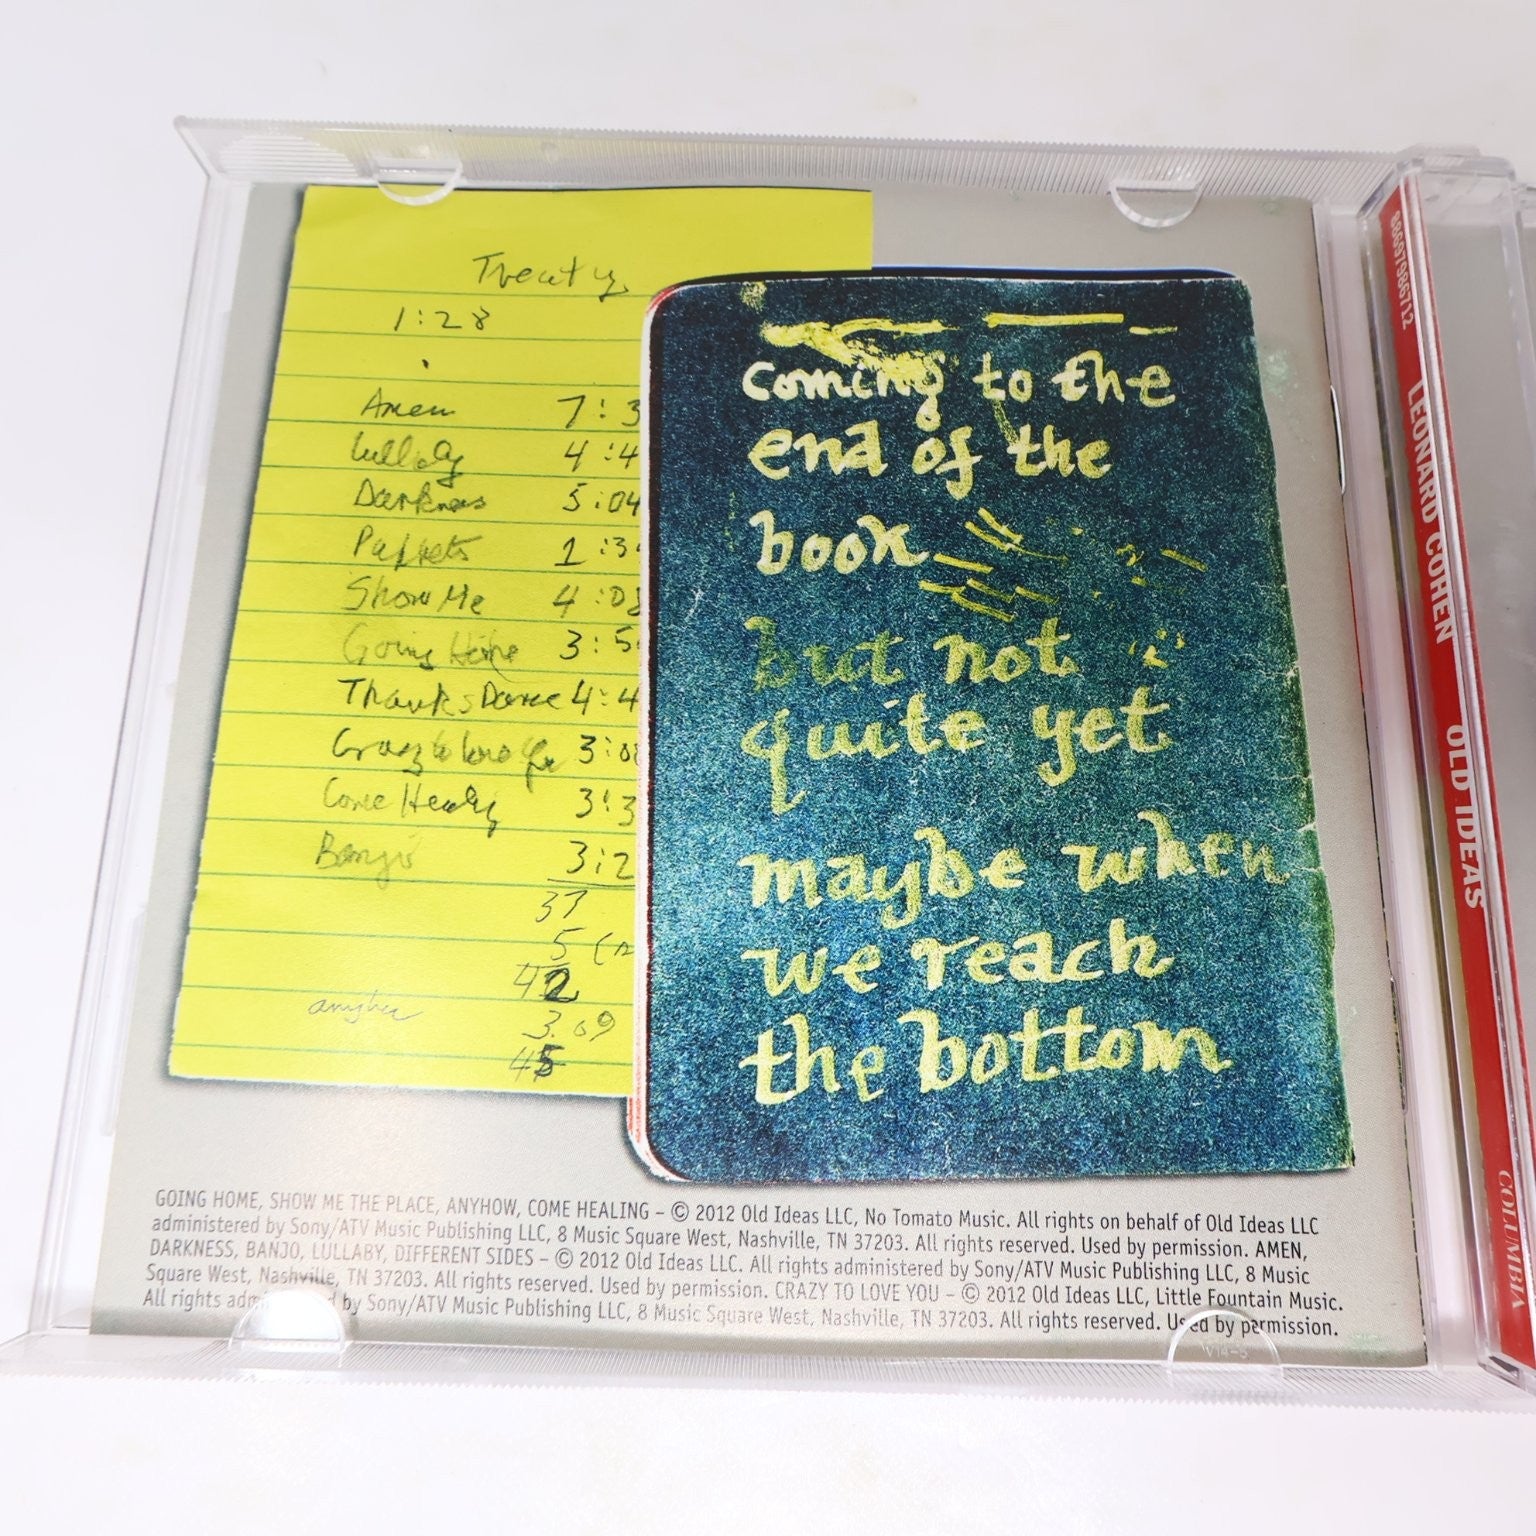 Treaty
1:28
Amen 7:3
Lullaby 4:4
Darkness 5:04
Puppets 1:3
Show Me 4:08
Going Home 3:5
Thanks Dance 4:4
Crazy to love you 3:08
Come Healing 3:3
Banjo 3:2
37
5
42
anyhow
3.09
45
coming to the
end of the
book
but not
quite yet
maybe when
we reach
the bottom
GOING HOME, SHOW ME THE PLACE, ANYHOW, COME HEALING – © 2012 Old Ideas LLC, No Tomato Music. All rights on behalf of Old Ideas LLC
administered by Sony/ATV Music Publishing LLC, 8 Music Square West, Nashville, TN 37203. All rights reserved. Used by permission. AMEN,
DARKNESS, BANJO, LULLABY, DIFFERENT SIDES – © 2012 Old Ideas LLC. All rights administered by Sony/ATV Music Publishing LLC, 8 Music
Square West, Nashville, TN 37203. All rights reserved. Used by permission. CRAZY TO LOVE YOU – © 2012 Old Ideas LLC, Little Fountain Music.
All rights by Sony/ATV Music Publishing LLC, 8 Music Square West, Nashville, TN 37203. All rights reserved. Used by permission.
88697986712
LEONARD COHEN
OLD IDEAS
COLUMBIA